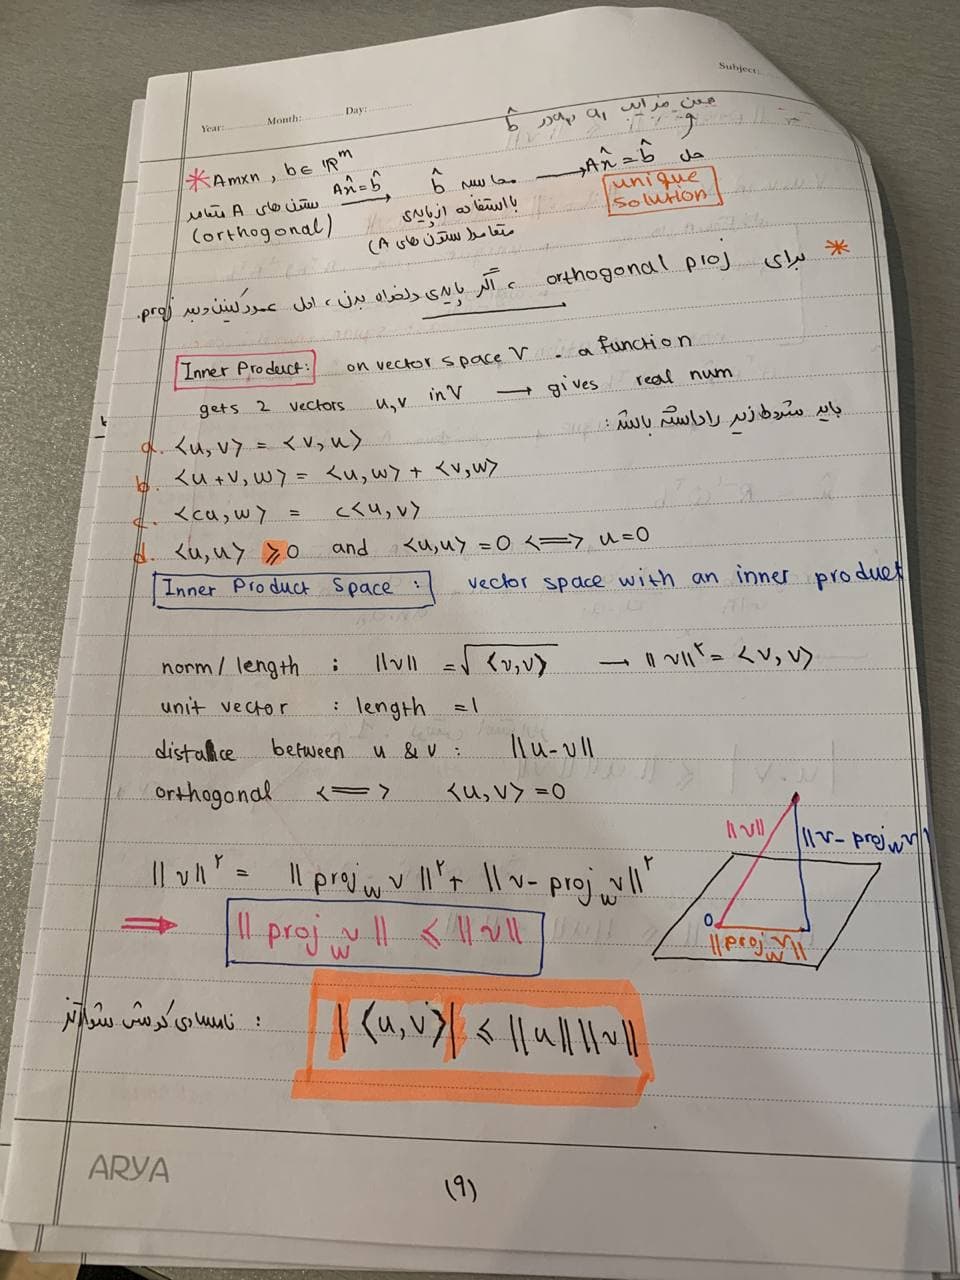 Subject:
Year: Month: Day:
ضرایب a₁ a₂ در b̂
* Amxn , b ∈ IRᵐ
ستون های A متعامد (orthogonal) Ax̂=b̂ → محاسبه b̂ با استفاده از پایه‌ی (متعامد ستون های A → حل Ax̂ = b̂ unique solution
* برای orthogonal proj ، اگر پایه‌ی دلخواه بدن ، اول عمود کنین و بعد proj.
Inner Product: on vector space V . a function
gets 2 vectors u,v in V → gives real num
باید شروط زیر را داشته باشد :
a. <u,v> = <v,u>
b. <u+v,w> = <u,w> + <v,w>
c. <cu,w> = c<u,v>
d. <u,u> ⩾ 0 and <u,u> = 0 <=> u=0
Inner Product Space : vector space with an inner product
norm/length : ||v|| = √<v,v> → ||v||² = <v,v>
unit vector : length = 1
distance between u & v : ||u-v||
orthogonal <=> <u,v> = 0
||v||
||v - proj_w v||
||v||² = ||proj_w v||² + ||v - proj_w v||²
0
||proj_w v||
⇒ ||proj_w v|| ⩽ ||v||
نامساوی کوشی شوارتز : |<u,v>| ⩽ ||u|| ||v||
ARYA
(9)